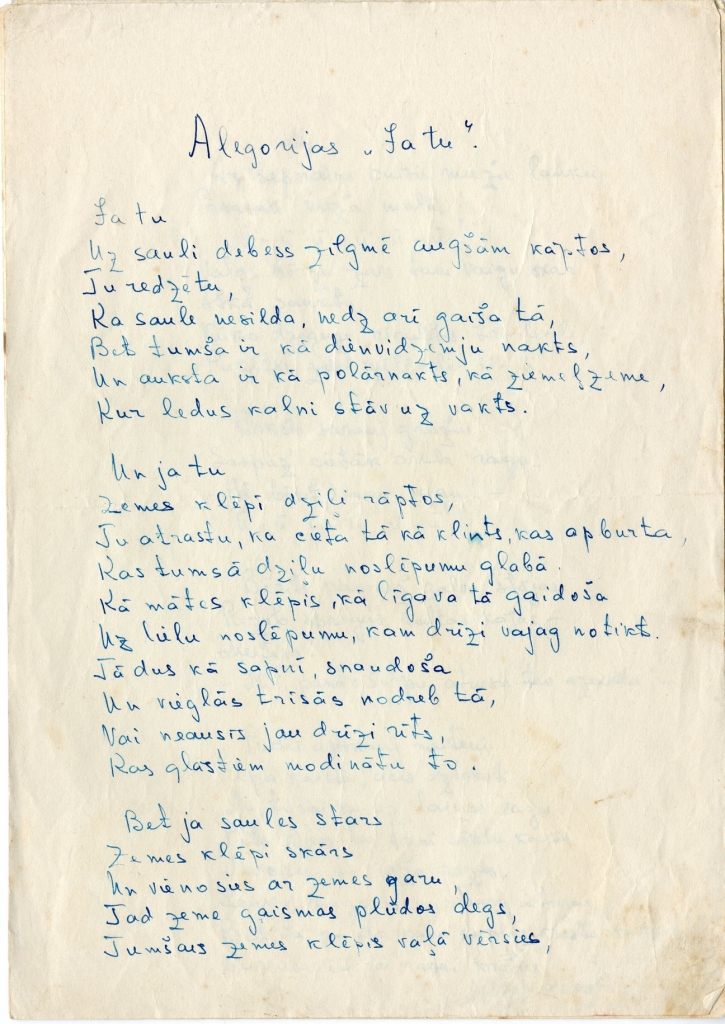 Alegorijas „Ja tu“.
Ja tu
Uz sauli debess zilgmē augšām kāptos,
Tu redzētu,
Ka saule nesilda, nedz arī gaiša tā,
Bet tumša ir kā dienvidzemju nakts,
Un auksta ir kā polārnakts, kā ziemeļzeme,
Kur ledus kalni stāv uz vakts.
Un ja tu
Zemes klēpī dziļi rāptos,
Tu atrastu, ka cieta tā kā klints, kas apburta,
Kas tumsā dziļu noslēpumu glabā.
Kā mātes klēpis, kā līgava tā gaidoša
Uz lielu noslēpumu, kam drīzi vajag notikt.
Tā dus kā sapnī, snaudoša
Un vieglās trīsās nodreb tā,
Vai neausīs jau drīzi rīts,
Kas glāstiem modinātu to.
Bet ja saules stars
Zemes klēpi skārs
Un vienosies ar zemes garu,
Tad zeme gaismas plūdos degs,
Tumšais zemes klēpis vaļā vērsies,